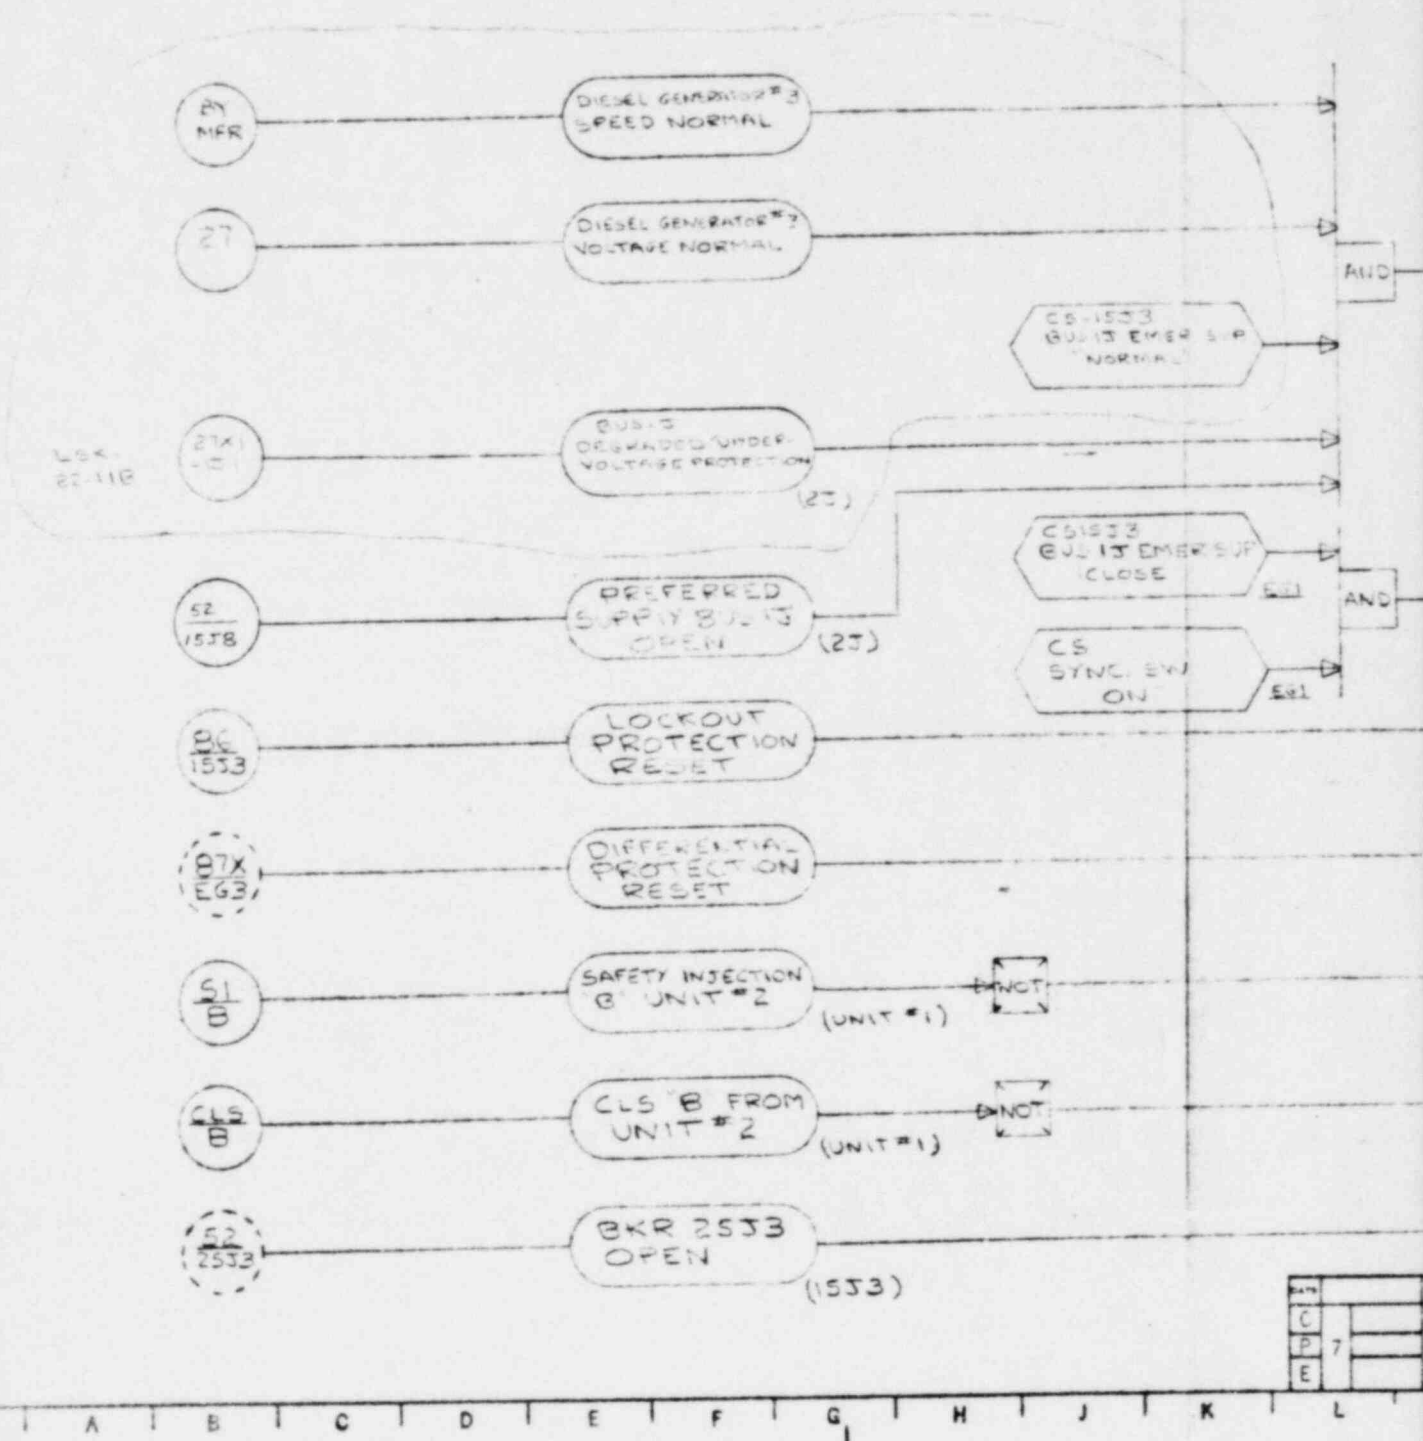 MFR
DIESEL GENERATOR #3
SPEED NORMAL
27
DIESEL GENERATOR
VOLTAGE NORMAL
AND
CS-15J3
BUS 1J EMER SUP
"NORMAL"
LSK-
22-11B
27X1
BUS 1J
DEGRADED/UNDER-
VOLTAGE PROTECTION
(2J)
CS15J3
BUS 1J EMER SUP
CLOSE
EG1
AND
52
15J8
PREFERRED
SUPPLY BUS 1J
OPEN
(2J)
CS
SYNC. SW
ON
EG1
86
15J3
LOCKOUT
PROTECTION
RESET
87X
EG3
DIFFERENTIAL
PROTECTION
RESET
SI
B
SAFETY INJECTION
"B" UNIT #2
(UNIT #1)
NOT
CLS
B
CLS "B" FROM
UNIT #2
(UNIT #1)
NOT
52
25J3
BKR 25J3
OPEN
(15J3)
DATE
C
P
7
E
A B C D E F G H J K L